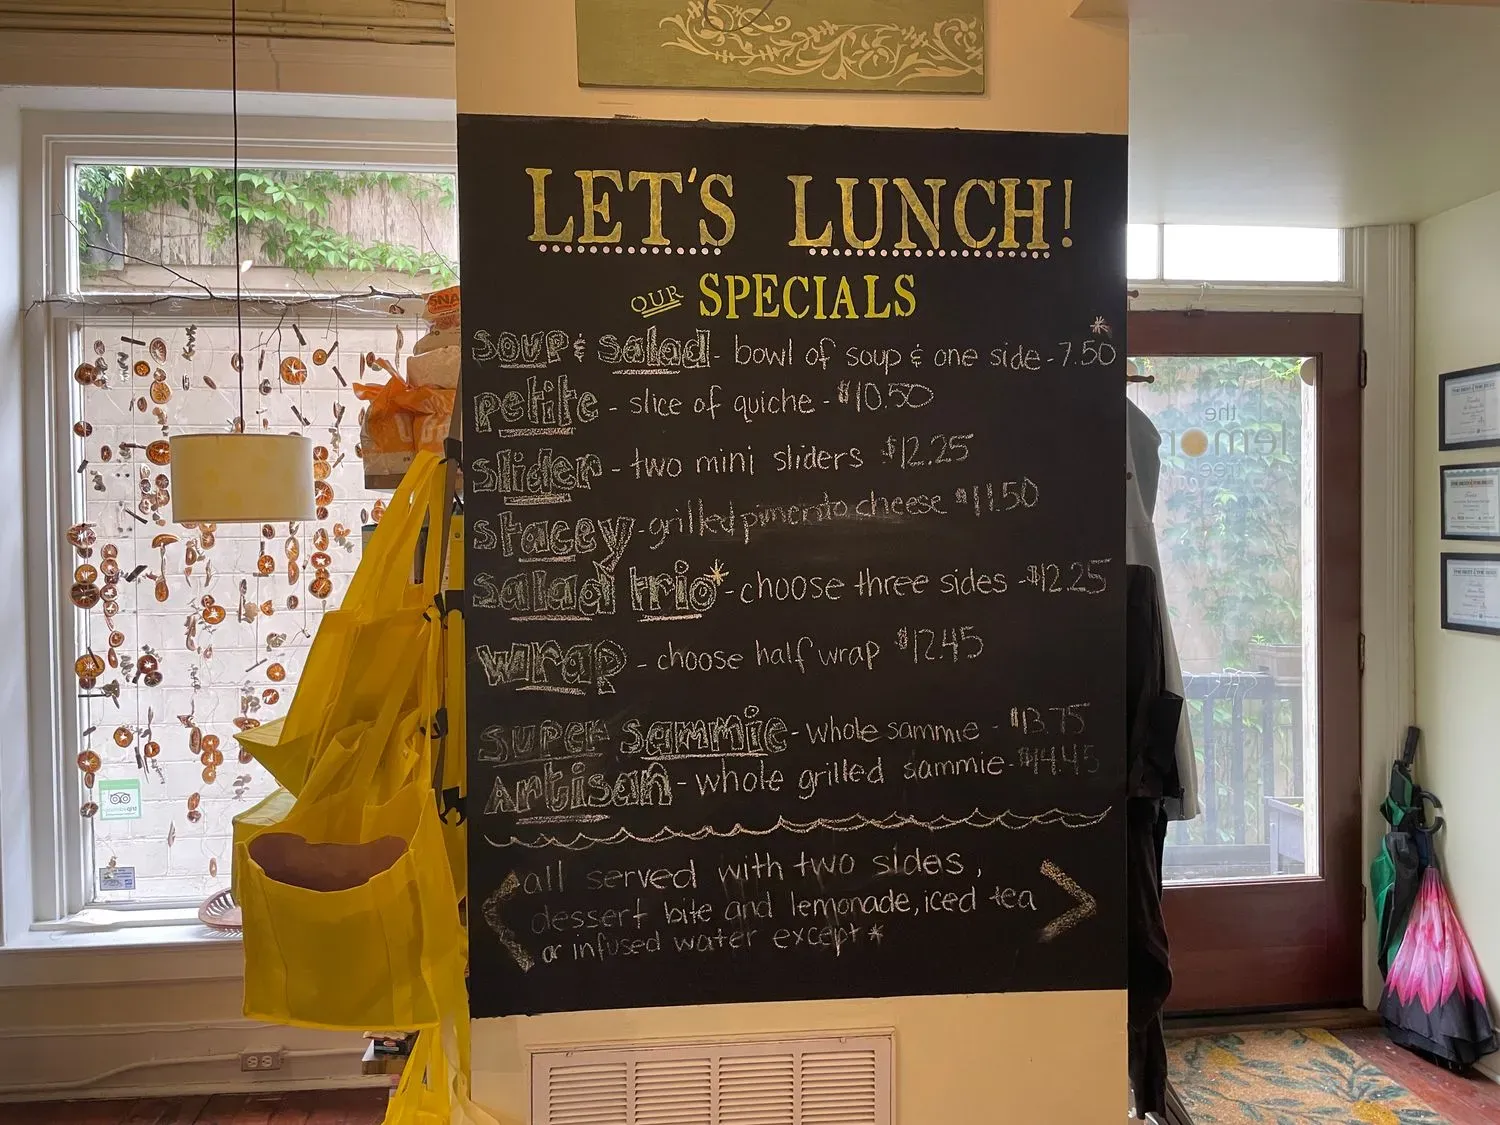 LET'S LUNCH!
OUR SPECIALS
soup & salad - bowl of soup & one side - 7.50 *
petite - slice of quiche - $10.50
slider - two mini sliders $12.25
stacey - grilled pimento cheese $11.50
salad trio* - choose three sides - $12.25
wrap - choose half wrap $12.45
super sammie - whole sammie - $13.75
Artisan - whole grilled sammie - $14.45
all served with two sides,
dessert bite and lemonade, iced tea
or infused water except *
the
lemon
tree
SNA